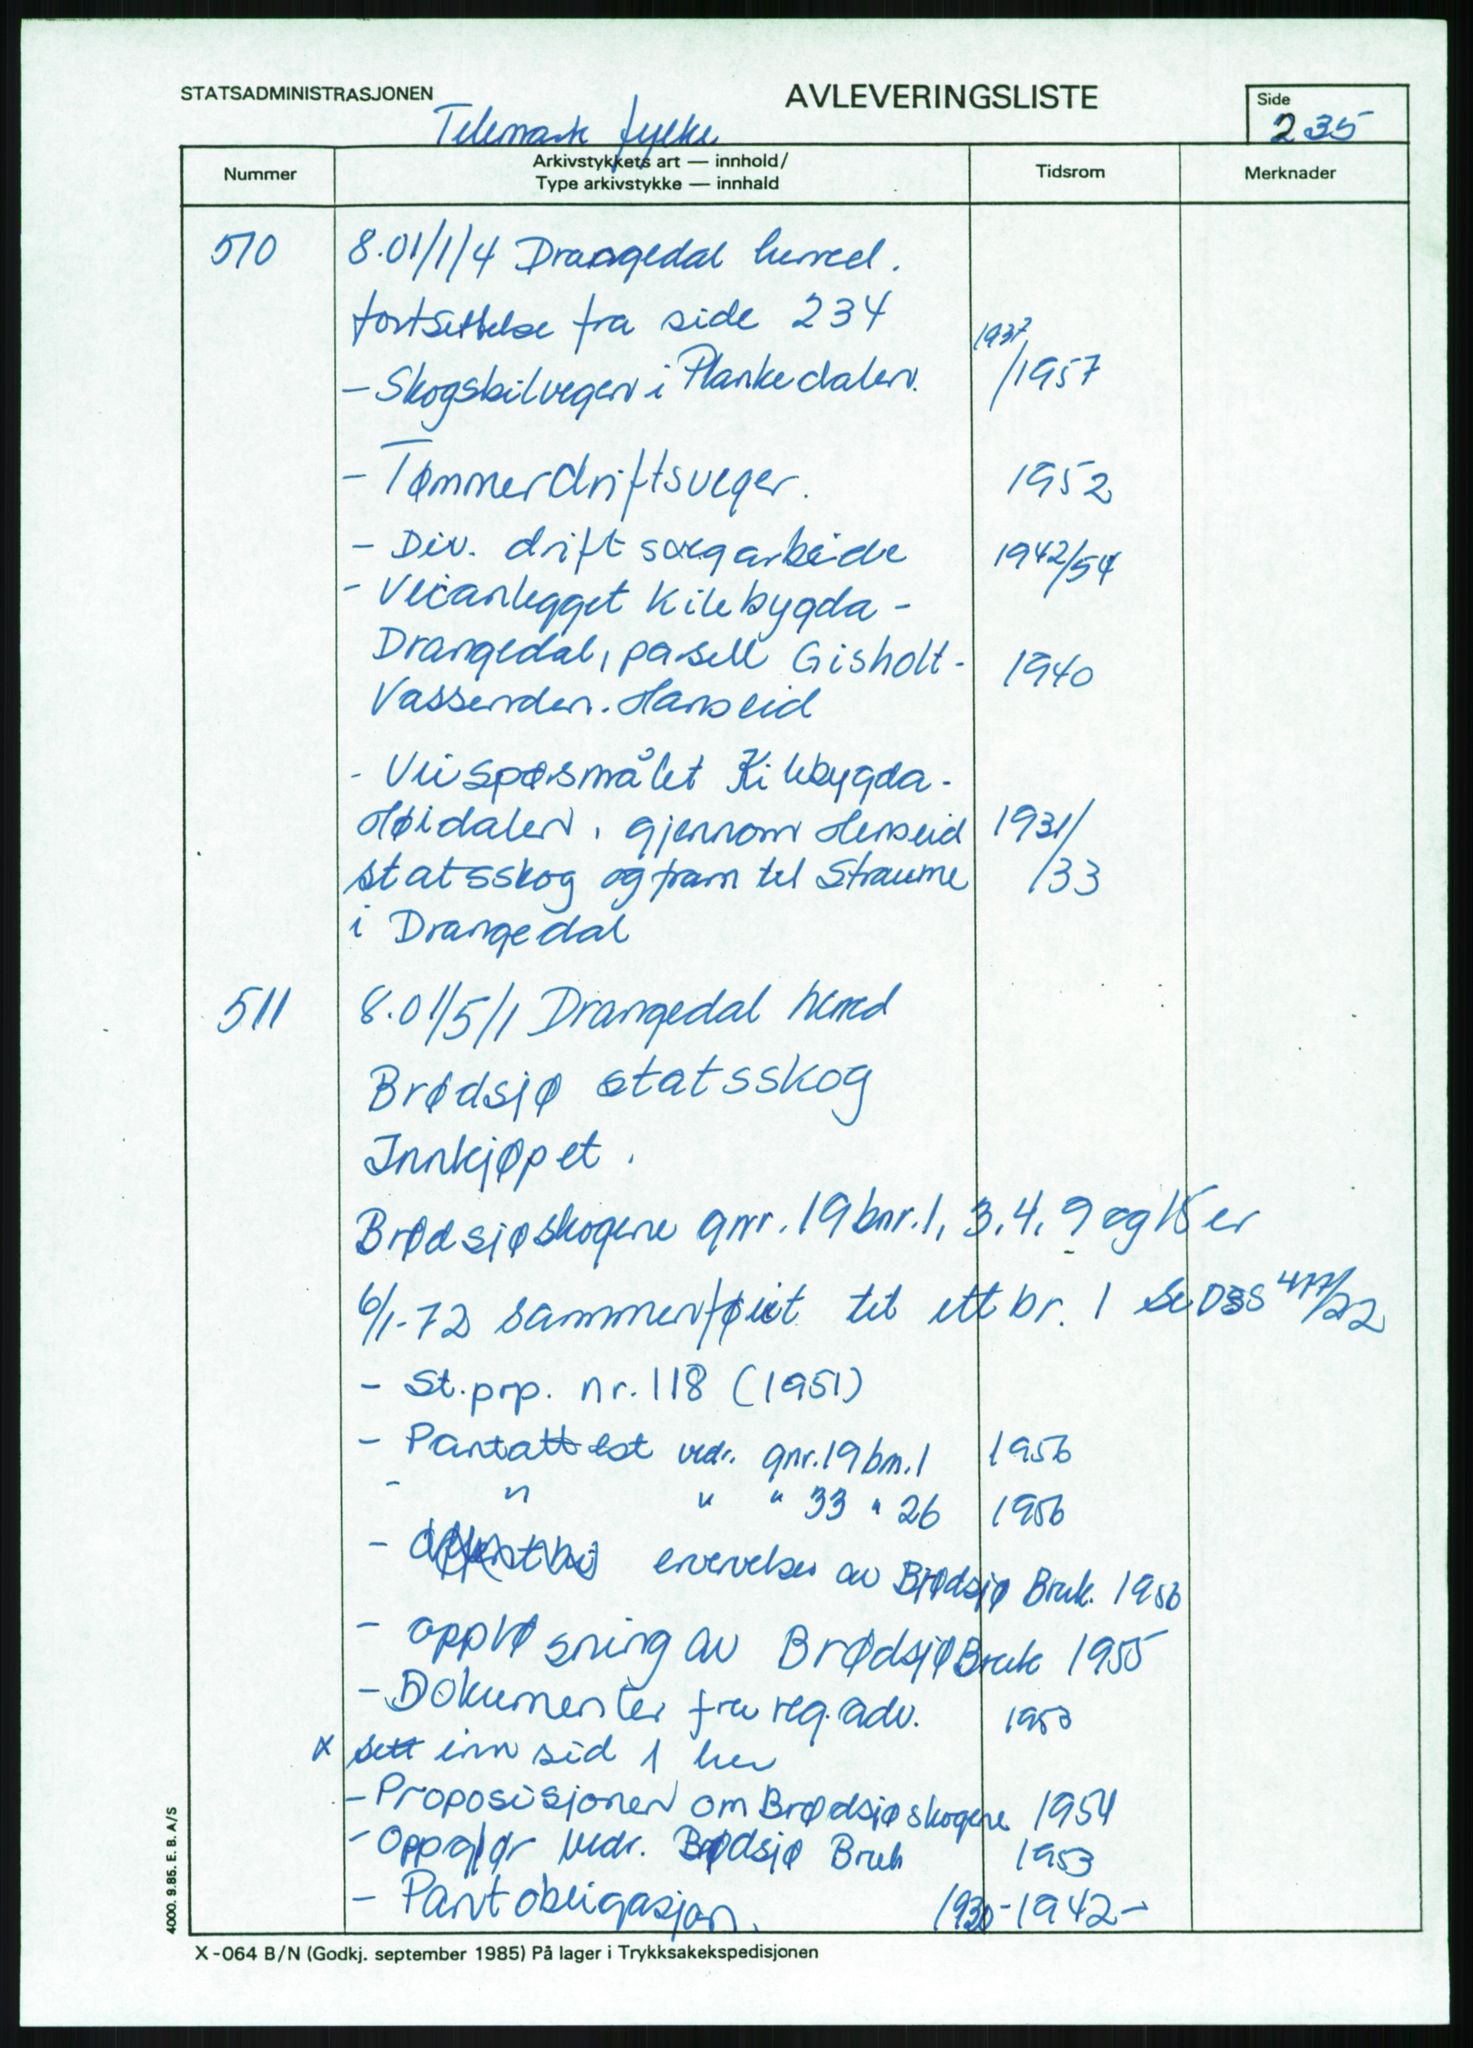 STATSADMINISTRASJONEN
AVLEVERINGSLISTE
Side
235
Telemark fylke
Nummer
Arkivstykkets art — innhold/
Type arkivstykke — innhald
Tidsrom
Merknader
510 8.01/1/4 Drangedal herred.
fortsettelse fra side 234
- Skogsbilvegen i Plankedalen. 1937/1957
- Tømmerdriftsveger. 1952
- Div. driftsvegarbeide 1942/54
- Veianlegget Kilebygda -
Drangedal, parsell Gisholt - 1940
Vassenden. Henseid
- Veispørsmålet Kilebygda -
Høidalen, gjennom Henseid 1931/
statsskog og fram til Straume /33
i Drangedal
511 8.01/5/1 Drangedal herred
Brødsjø statsskog
Innkjøpet.
Brødsjøskogene gnr. 19 bnr. 1, 3, 4, 9 og 15 er
6/1-72 sammenføiet til ett br. 1 se DSS 477/22
- St.prp. nr. 118 (1951)
- Pantattest vedr. gnr. 19 bnr. 1 1956
- " " " 33 " 26 1956
- ervervelse av Brødsjø Bruk. 1956
- oppløsning av Brødsjø Bruk 1955
- Dokumenter fra reg.adv. 1953
x sett inn sid 1 her
- Proposisjonen om Brødsjøskogene 1954
- Oppgjør vedr. Brødsjø Bruk 1953
- Pantobligasjon. 1930-1942-
4000. 9.85. E. B. A/S
X-064 B/N (Godkj. september 1985) På lager i Trykksakekspedisjonen